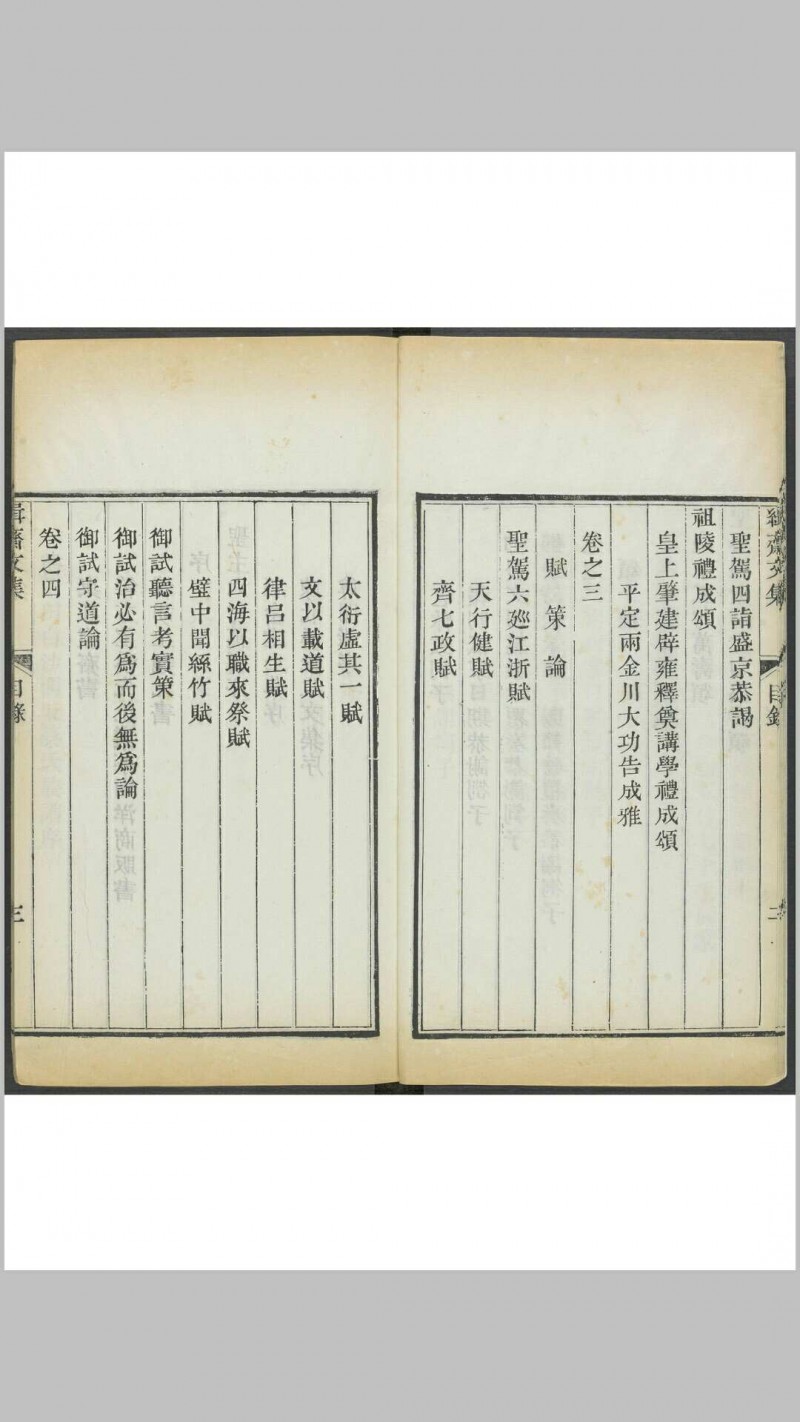 緝齋文集
目錄
二
聖駕四詣盛京恭謁
祖陵禮成頌
皇上肇建辟雍釋奠講學禮成頌
平定兩金川大功告成雅
卷之三
賦 策 論
聖駕六廵江浙賦
天行健賦
齊七政賦
太衍虛其一賦
文以載道賦
律呂相生賦
四海以職來祭賦
壁中聞絲竹賦
御試聽言考實策
御試治必有爲而後無爲論
御試守道論
卷之四
緝齋文集
目錄
三